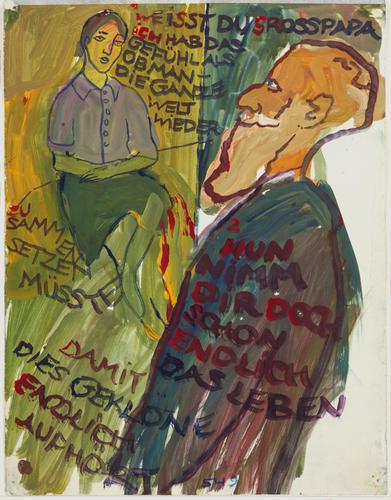 WEISST DU GROSSPAPA
ICH HAB DAS
GEFÜHL ALS
OB MAN –
DIE GANZE
WELT
WIEDER
ZU
SAMMEN
SETZEN
MÜSST
2
NUN
NIMM
DIR DOCH
SCHON
ENDLICH
DAS LEBEN
DAMIT
DIES GEKLÖNE
ENDLICH
AUFHÖRT